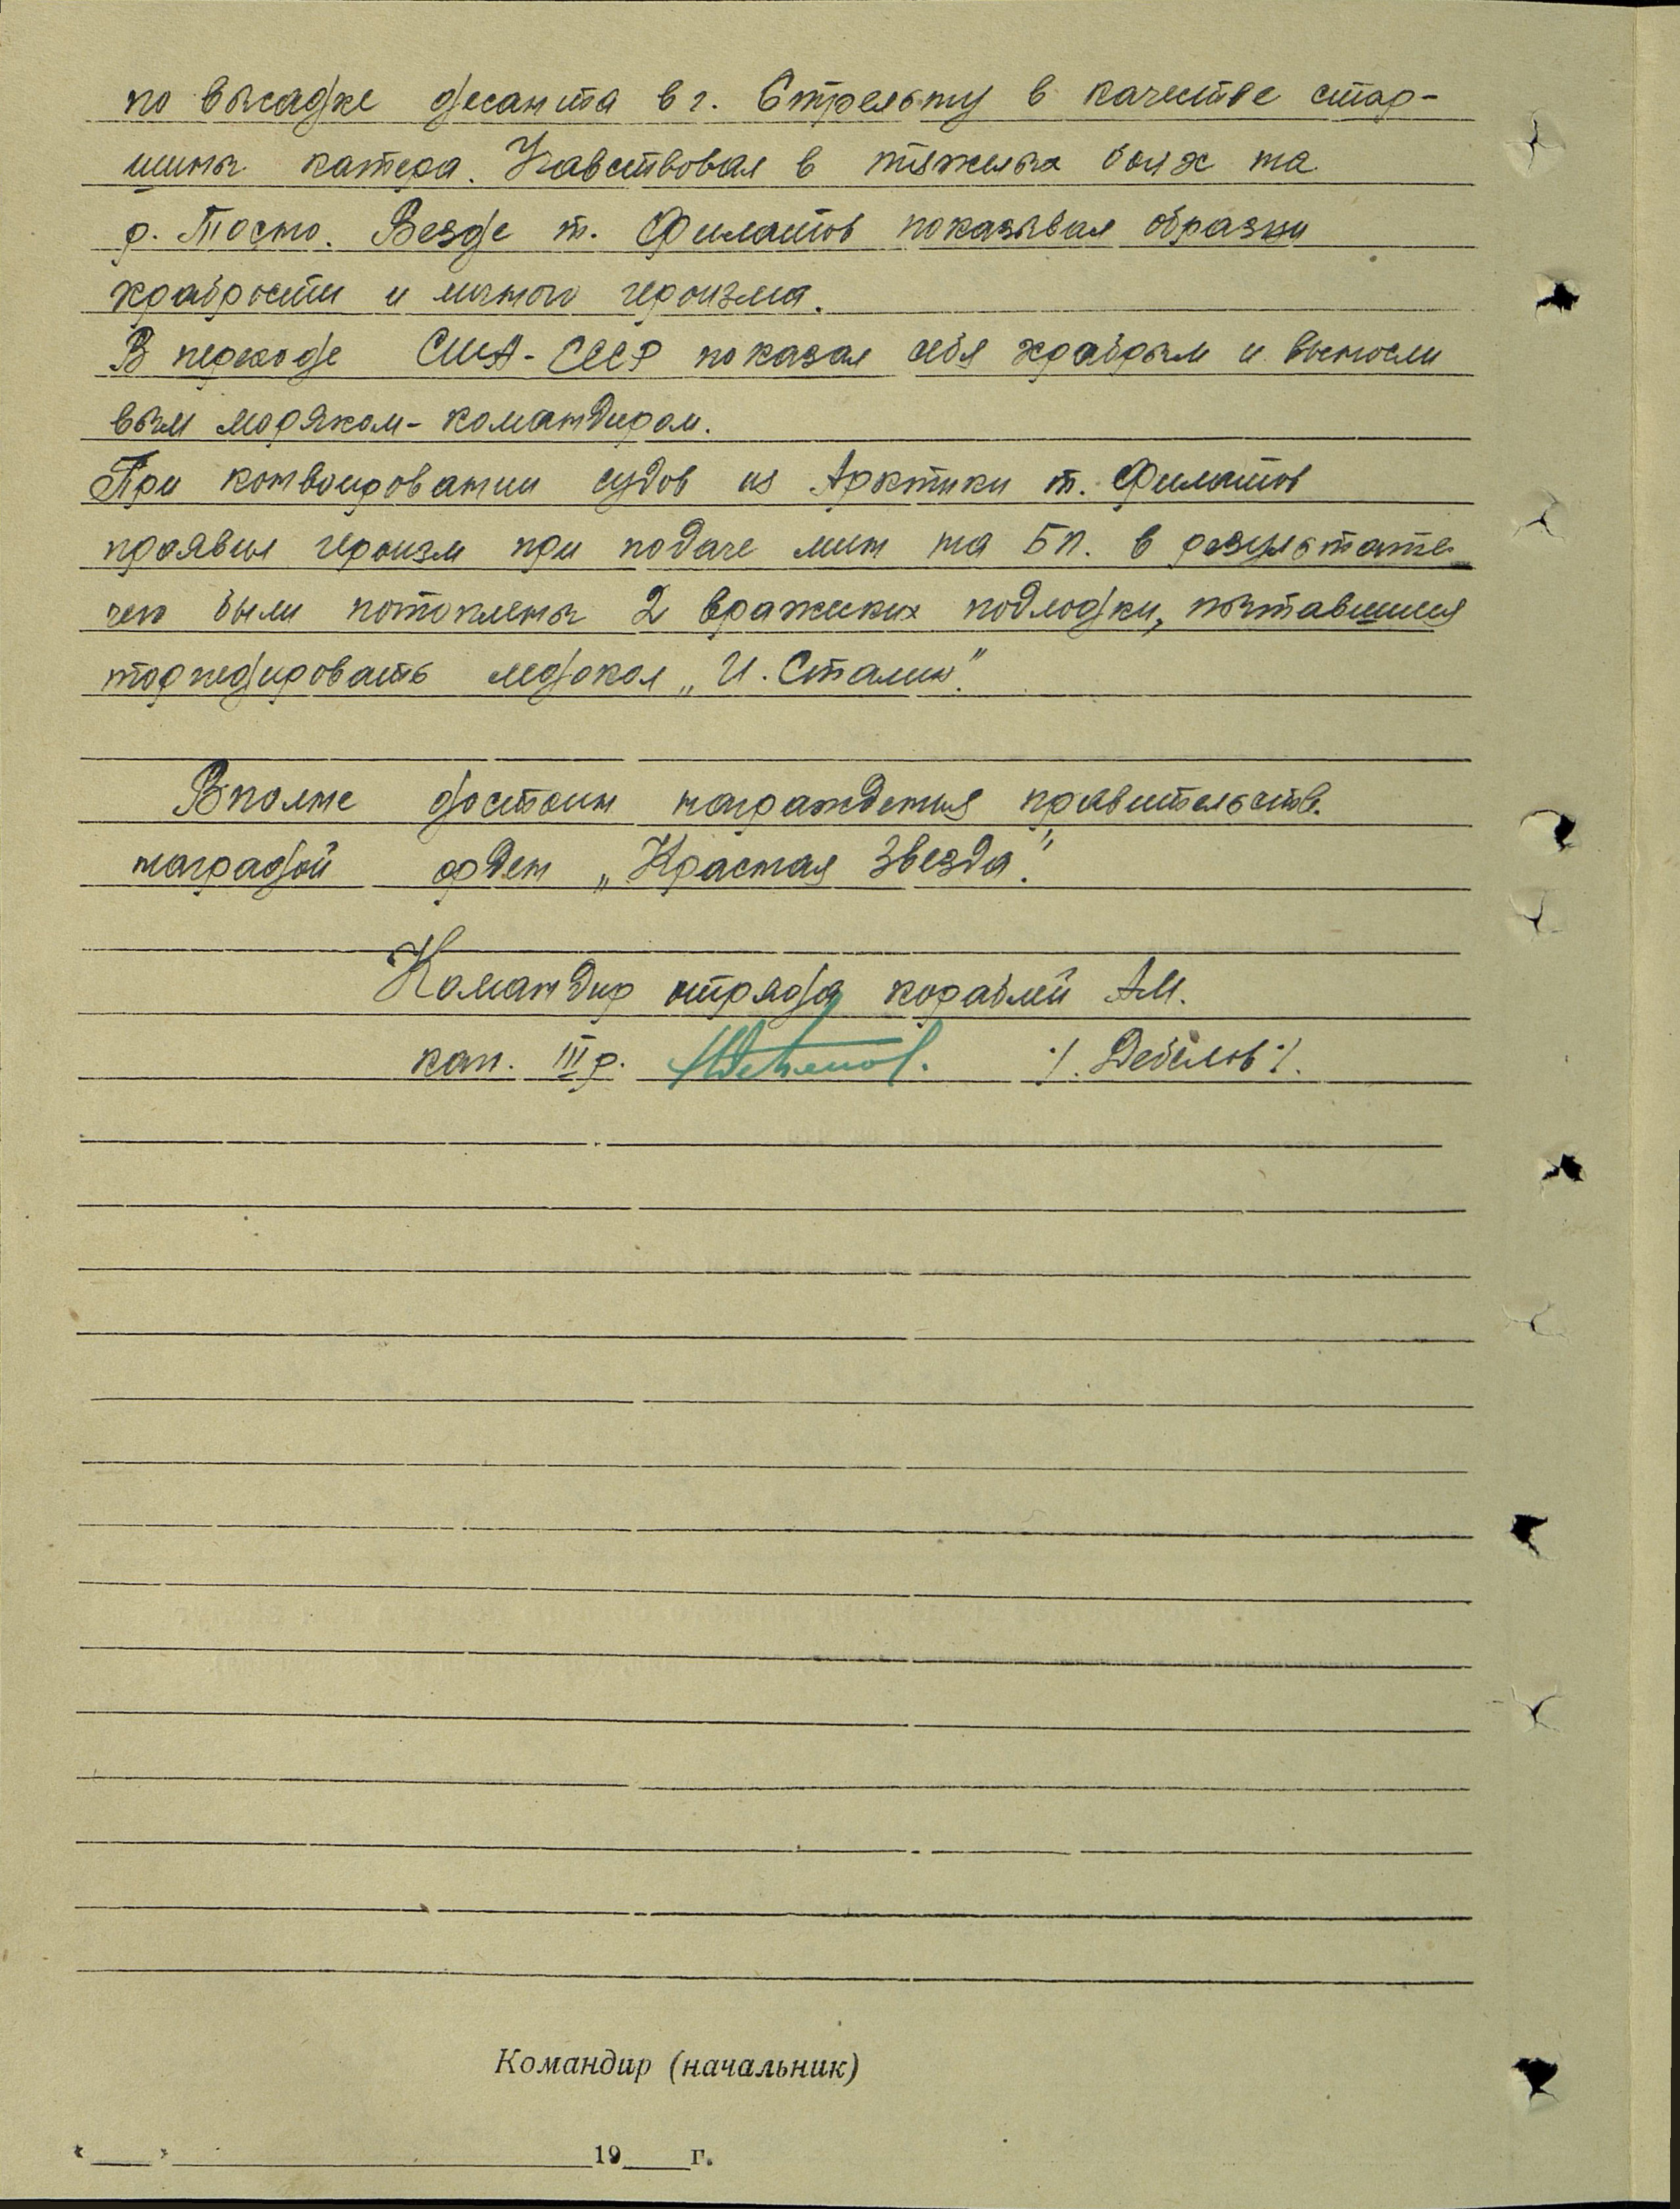 по высадке десанта в г. Стрельну в качестве стар-
шины катера. Учавствовал в тяжелых боях на
р. Тосно. Везде т. Филатов показывал образцы
храбрости и личного героизма.
В переходе США - СССР показал себя храбрым и выносли
вым моряком - командиром.
При конвоировании судов из Арктики т. Филатов
проявил героизм при подаче мин на БП. в результате
чего были потоплены 2 вражеских подлодки, пытавшиеся
торпедировать ледокол „И. Сталин".
Вполне достоин награждения правительств.
наградой орден „Красная Звезда".
Командир отряда кораблей АМ.
кап. III р. /. Дебелов /.
Командир (начальник)
« » 19 г.